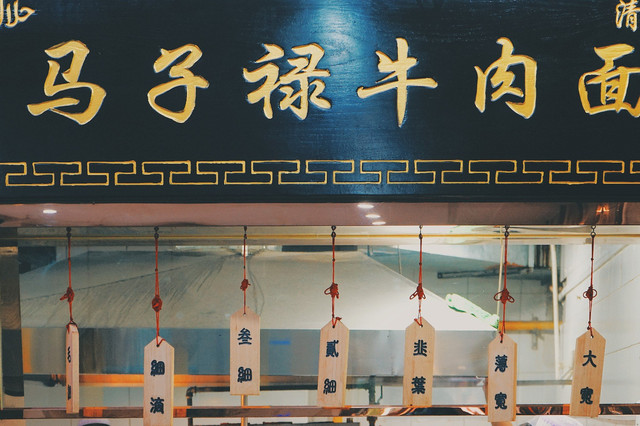 清
马子禄牛肉面
細滴
叁細
貳細
韭葉
薄寬
大寬